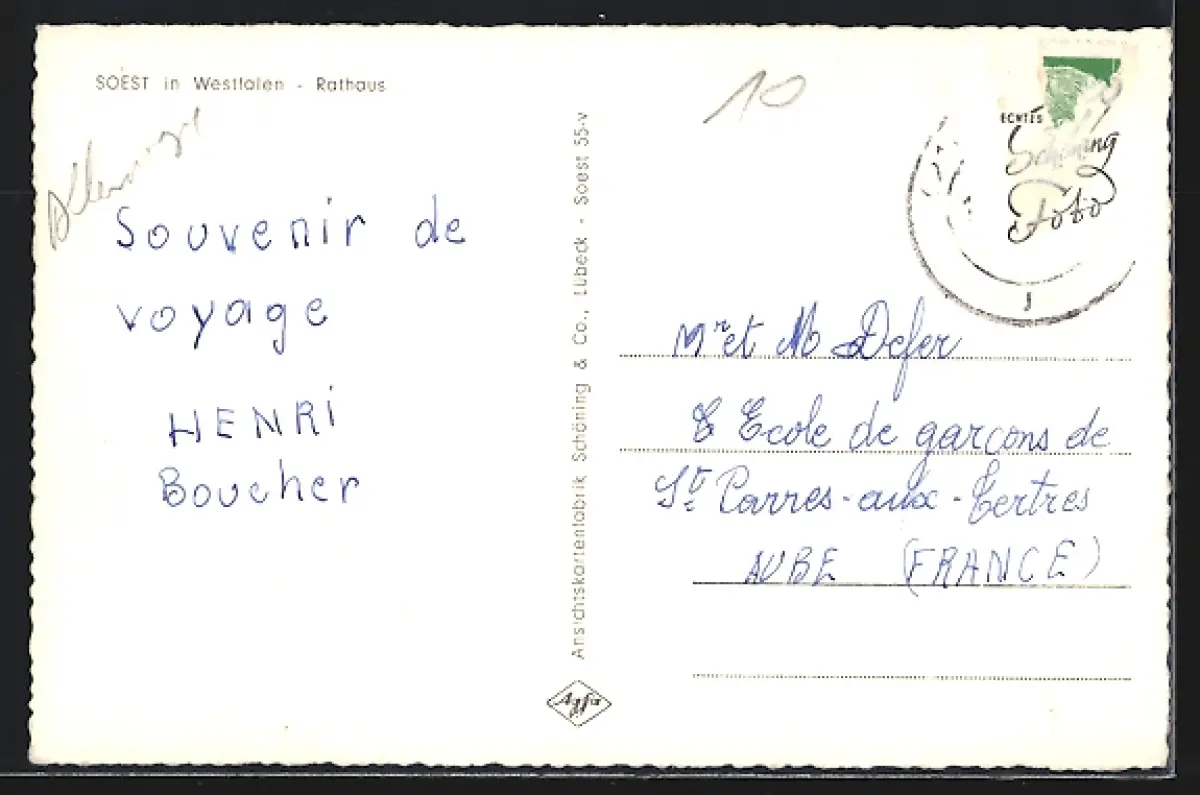 SOEST in Westfalen - Rathaus
Allemagne
10
Souvenir de
voyage
HENRi
Boucher
Ansichtskartenfabrik Schöning & Co., Lübeck - Soest 55-v
Agfa
ECHTES
Schöning
Foto
Mr et M Defer
Ecole de garçons de
St Parres-aux-Tertres
AUBE (FRANCE)